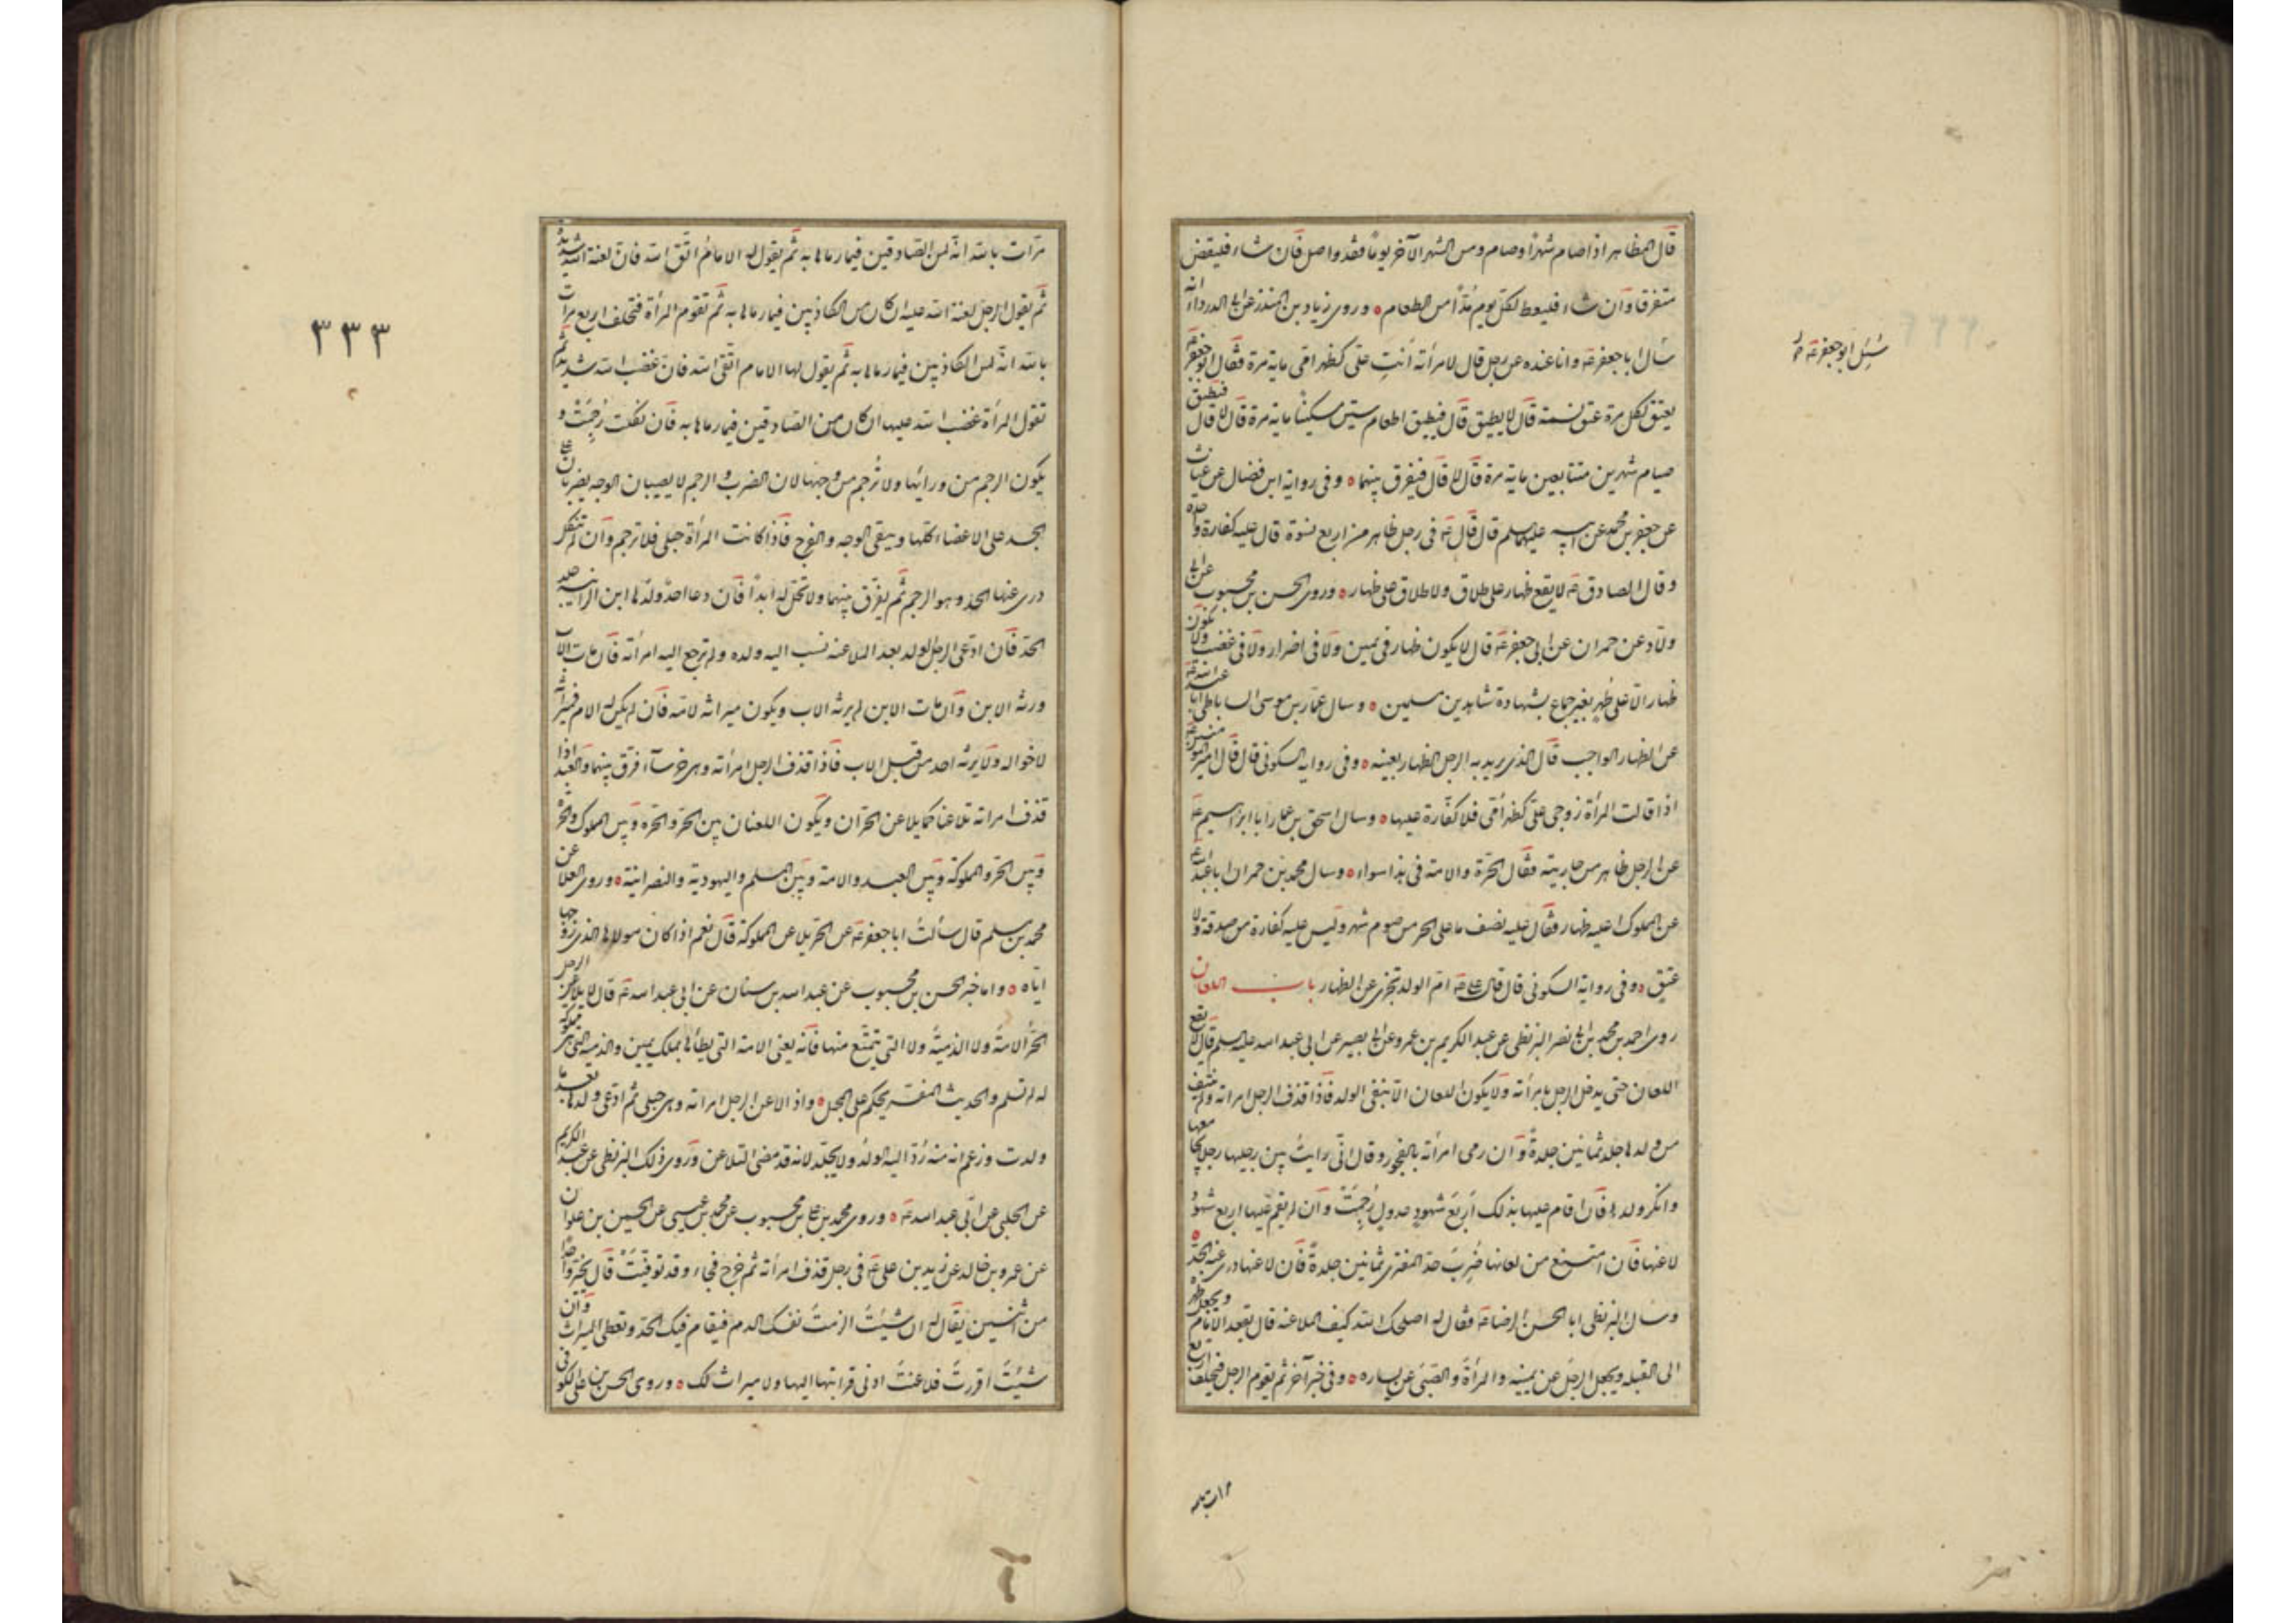 قال المظاهر اذا صام شهرًا وصام ومن الشهر الآخر يومًا فقد واصل فان شاء فليقض
متفرقا وان شاء فليعط لكل يوم مُدًّا من الطعام ه وروى زياد بن المنذر عن ابى الدرداء انه
سأل ابا جعفر عه وانا عنده عن رجل قال لامرأته أنتِ علىّ كظهر امّى ماية مرة فقال ابو جعفر عه
يعتق لكل مرة عتق نسمة قال لا يطيق قال فيطيق اطعام ستين مسكينًا ماية مرة قال لا قال فيطيق
صيام شهرين متتابعين ماية مرة قال لا قال فيفرق بينهما ه وفى رواية ابن فضال عن غياث
عن جعفر بن محمد عن ابيه عليهما سلم قال قال عه فى رجل ظاهر من اربع نسوة قال عليه كفارة واحده
وقال الصادق عه لا يقع ظهار على طلاق ولا طلاق على ظهار ه وروى الحسن بن محبوب عن ابى
ولاد عن حمران عن ابى جعفر عه قال لا يكون ظهار فى يمين ولا فى اضرار ولا فى غضب ولا يكون
ظهار الا على طُهرٍ بغير جماع بشهادة شاهدين مسلمين ه وسال عمّار بن موسى الساباطى ابا عبد الله عه
عن الظهار الواجب قال الذى يريد به الرجل الظهار بعينه ه وفى رواية السكونى قال قال امير المؤمنين عه
اذا قالت المرأة زوجى علىّ كظهر أمّى فلا كفّارة عليها ه وسال اسحق بن عمار ابا ابراهيم عه
عن الرجل ظاهر من جاريته فقال الحرّة والامة فى هذا سواء ه وسال محمد بن حمران ابا عبد الله عه
عن المملوك اعليه ظهار فقال عليه نصف ما على الحر من صوم شهر وليس عليه كفارة من صدقة ولا
عتق ه وفى رواية السكونى قال قال على عه امّ الولد تجزى عن الظهار باب اللعان
روى احمد بن محمد بن ابى نصر البزنطى عن عبد الكريم بن عمرو عن ابى بصير عن ابى عبد الله عليه السلم قال لا يقع
اللعان حتى يدخل الرجل بامرأته ولا يكون اللعان الا بنفى الولد فاذا قذف الرجل امراته ولم ينتف
من ولدها جلد ثمانين جلدةً وان رمى امرأته بالفجور وقال انّى رايتُ بين رجليها رجلًا يجامعها
وانكر ولدها فان اقام عليها بذلك أربَعَ شهودٍ عدول رُجِمَتْ وان لم يقم عليها اربع شهود
لاعنها فان امتنع من لعانها ضُرِبَ حد المفترى ثمانين جلدةً فان لاعنها درى عنه الحدّ ه
وسأل البزنطى ابا الحسن الرضا عه فقال له اصلحك الله كيف الملاعنه قال يقعد الامام ويجعل ظهره
الى القبله ويجعل الرجل عن يمينه والمرأةَ والصَّبىَ عن يساره ه وفى خبر آخر ثم يقوم الرجل فيحلف اربع
سُئِل ابو جعفر عه
مرّات بالله انّه لمن الصّادقين فيما رماها به ثم يقول له الامامُ اتّق الله فان لعنة الله شديدةٌ
ثم يقول الرجل لعنة الله عليه ان كان من الكاذبين فيما رماها به ثم تقوم المرأة فتحلف اربع مرات
بالله انّه لمن الكاذبين فيما رماها به ثم يقول لها الامام اتّقى الله فان غضب الله شديد ثم
تقول المرأة غضب الله عليها ان كان من الصّادقين فيما رماها به فان نكلت رُجِمَتْ و
يكون الرجم من ورائها ولا تُرجم من وجهها لان الضرب والرجم لا يصيبان الوجه يضربان على
الجسد على الاعضاء كلّها ويبقى الوجه والفرج فاذا كانت المرأة حبلى فلا ترجم وان لم تنكل
درى عنها الحدّ وهو الرجم ثم يفرّق بينهما ولا تحلّ له ابدًا فان دعا احدٌ ولدَها ابن الزانية جلد
الحدّ فان ادّعى الرجل الولد بعد الملاعنه نسب اليه ولده ولم ترجع اليه امرأته فان مات الاب
ورثه الابن وان مات الابن لم يرثه الاب ويكون ميراثه لامّه فان لم يكن له ام فميراثه
لاخواله ولا يرثه احد من قبل الاب فاذا قذف الرجل امرأته وهى خرساء فرق بينهما والعبد اذا
قذف امراته تلاعنا كما يلاعن الحرّان ويكون اللعان بين الحرّ والحرّه وبين المملوك والحرّة
وبين الحرّ والمملوكة وبين العبد والامة وبين المسلم واليهوديّة والنصرانية ه وروى العلا عن
محمد بن مسلم قال سألتُ ابا جعفر عه عن الحرّ يلاعن المملوكة قال نعم اذا كان مولاها الذى زوجها
ايّاه ه واما خبر الحسن بن محبوب عن عبد الله بن سنان عن ابى عبد الله عه قال لا يلاعن الرجل
الحرّ الامةَ ولا الذميّةَ ولا التى يتمتّع منها فانّه يعنى الامة التى يطأها بملك يمين والذميّه التى هى مملوكة
له لم تسلم والحديث المفسّر يحكم على المجمل ه واذا لاعن الرجل امراته وهى حبلى ثم ادّعى ولدها بعد ما
ولدت وزعم انه منه رُدّ اليه الولدُ ولا يجلد لانه قد مضى التلاعن وروى ذلك البزنطى عن عبد الكريم
عن الحلبى عن ابى عبد الله عه ه وروى محمد بن على بن محبوب عن محمد بن عيسى عن الحسين بن علوان
عن عمرو بن خالد عن زيد بن على عه فى رجل قذف امرأته ثم خرج فجاء وقد توفّيَتْ قال يخيّر واحدًا
من اثنين يقال له ان شئتَ الزمتَ نفسك الذم فيقام فيك الحدّ وتعطى الميراث وان
شئتَ اقررتَ فلاعنتَ ادنى قرابتها اليها ولا ميراث لك ه وروى الحسن بن على الكوفى
٣٣٣
مرات بالله